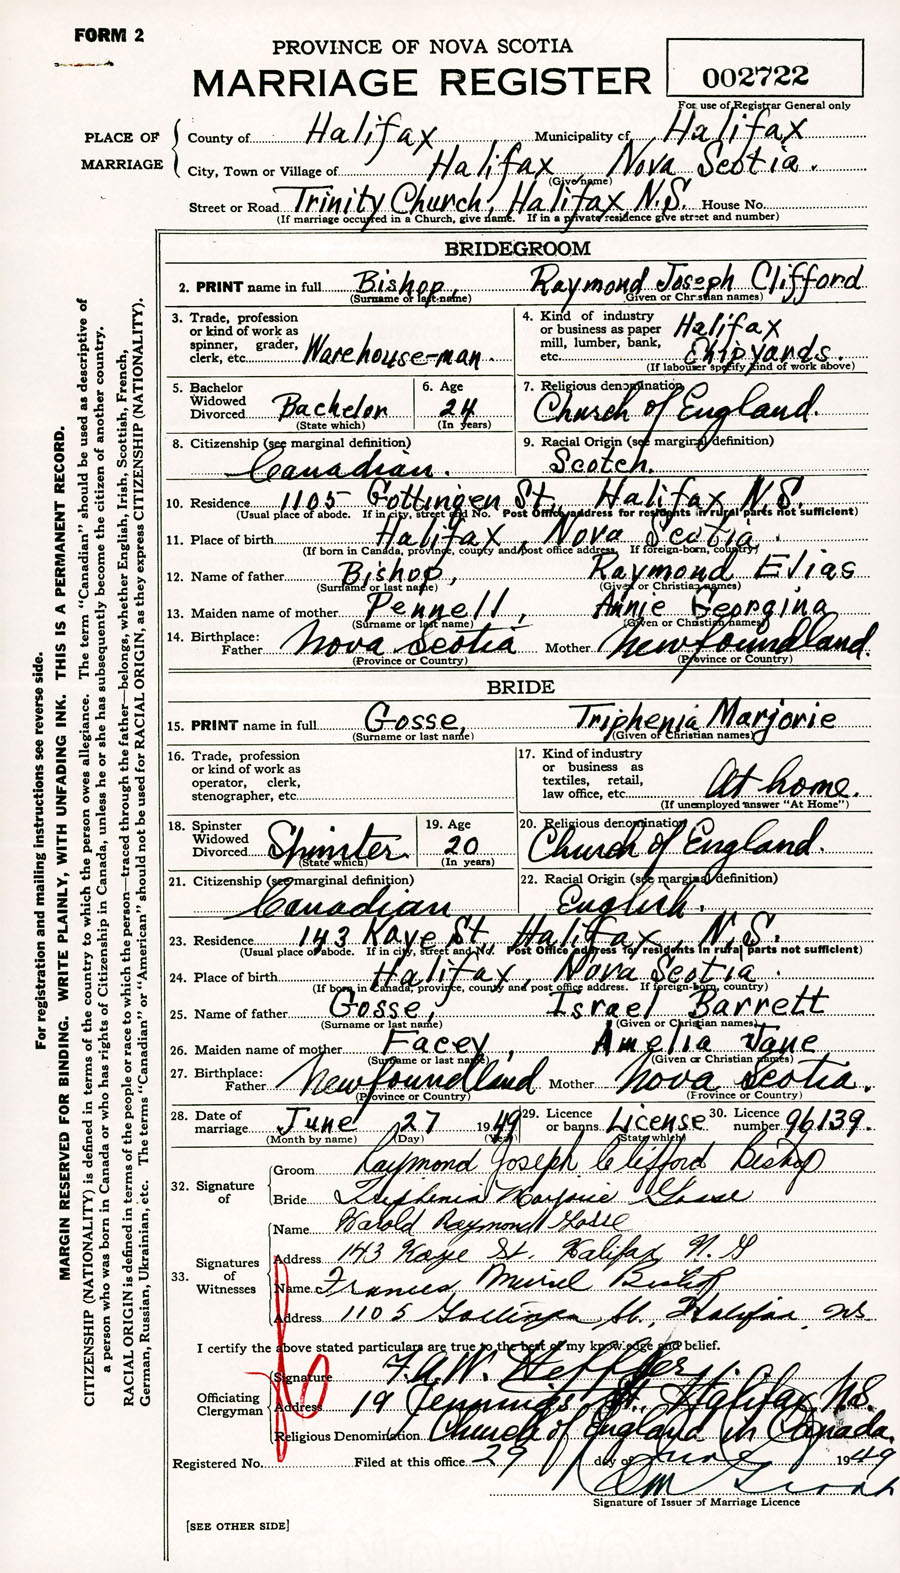 FORM 2
PROVINCE OF NOVA SCOTIA
MARRIAGE REGISTER
002722
For use of Registrar General only
PLACE OF MARRIAGE
County of Halifax Municipality of Halifax
City, Town or Village of Halifax, Nova Scotia.
(Give name)
Street or Road Trinity Church, Halifax N.S. House No.
(If marriage occurred in a Church, give name. If in a private residence give street and number)
BRIDEGROOM
2. PRINT name in full Bishop, Raymond Joseph Clifford
(Surname or last name) (Given or Christian names)
3. Trade, profession or kind of work as spinner, grader, clerk, etc. Warehouse-man.
4. Kind of industry or business as paper mill, lumber, bank, etc. Halifax Shipyards.
(If labourer specify kind of work above)
5. Bachelor Widowed Divorced Bachelor
(State which)
6. Age 24
(In years)
7. Religious denomination Church of England.
8. Citizenship (see marginal definition) Canadian.
9. Racial Origin (see marginal definition) Scotch.
10. Residence 1105 Gottingen St., Halifax N.S.
(Usual place of abode. If in city, street and No. Post Office address for residents in rural parts not sufficient)
11. Place of birth Halifax, Nova Scotia.
(If born in Canada, province, county and post office address. If foreign-born, country)
12. Name of father Bishop, Raymond Elias
(Surname or last name) (Given or Christian names)
13. Maiden name of mother Pennell, Annie Georgina
(Surname or last name) (Given or Christian names)
14. Birthplace: Father Nova Scotia Mother Newfoundland.
(Province or Country) (Province or Country)
BRIDE
15. PRINT name in full Gosse, Triphenia Marjorie
(Surname or last name) (Given or Christian names)
16. Trade, profession or kind of work as operator, clerk, stenographer, etc.
17. Kind of industry or business as textiles, retail, law office, etc. At home.
(If unemployed answer "At Home")
18. Spinster Widowed Divorced Spinster
(State which)
19. Age 20
(In years)
20. Religious denomination Church of England.
21. Citizenship (see marginal definition) Canadian
22. Racial Origin (see marginal definition) English.
23. Residence 143 Kaye St., Halifax, N.S.
(Usual place of abode. If in city, street and No. Post Office address for residents in rural parts not sufficient)
24. Place of birth Halifax, Nova Scotia.
(If born in Canada, province, county and post office address. If foreign-born, country)
25. Name of father Gosse, Israel Barrett
(Surname or last name) (Given or Christian names)
26. Maiden name of mother Facey, Amelia Jane
(Surname or last name) (Given or Christian names)
27. Birthplace: Father Newfoundland Mother Nova Scotia.
(Province or Country) (Province or Country)
28. Date of marriage June 27 1949 29. Licence or banns License 30. Licence number 96139.
(Month by name) (Day) (Year) (State which)
32. Signature of
Groom Raymond Joseph Clifford Bishop
Bride Triphenia Marjorie Gosse
33. Signatures of Witnesses
Name Harold Raymond Gosse
Address 143 Kaye St. Halifax N.S
Name Frances Muriel Bishop
Address 1105 Gottingen St., Halifax, NS
I certify the above stated particulars are true to the best of my knowledge and belief.
Officiating Clergyman
Signature F.A.W. Heffler.
Address 19 Jennings St., Halifax N.S.
Religious Denomination Church of England in Canada.
Registered No. Filed at this office 29 day of June 1949
Signature of Issuer of Marriage Licence
[SEE OTHER SIDE]
For registration and mailing instructions see reverse side.
MARGIN RESERVED FOR BINDING. WRITE PLAINLY, WITH UNFADING INK. THIS IS A PERMANENT RECORD.
CITIZENSHIP (NATIONALITY) is defined in terms of the country to which the person owes allegiance. The term "Canadian" should be used as descriptive of
a person who was born in Canada or who has rights of Citizenship in Canada, unless he or she has subsequently become the citizen of another country.
RACIAL ORIGIN is defined in terms of the people or race to which the person—traced through the father—belongs, whether English, Irish, Scottish, French,
German, Russian, Ukrainian, etc. The terms "Canadian" or "American" should not be used for RACIAL ORIGIN, as they express CITIZENSHIP (NATIONALITY).